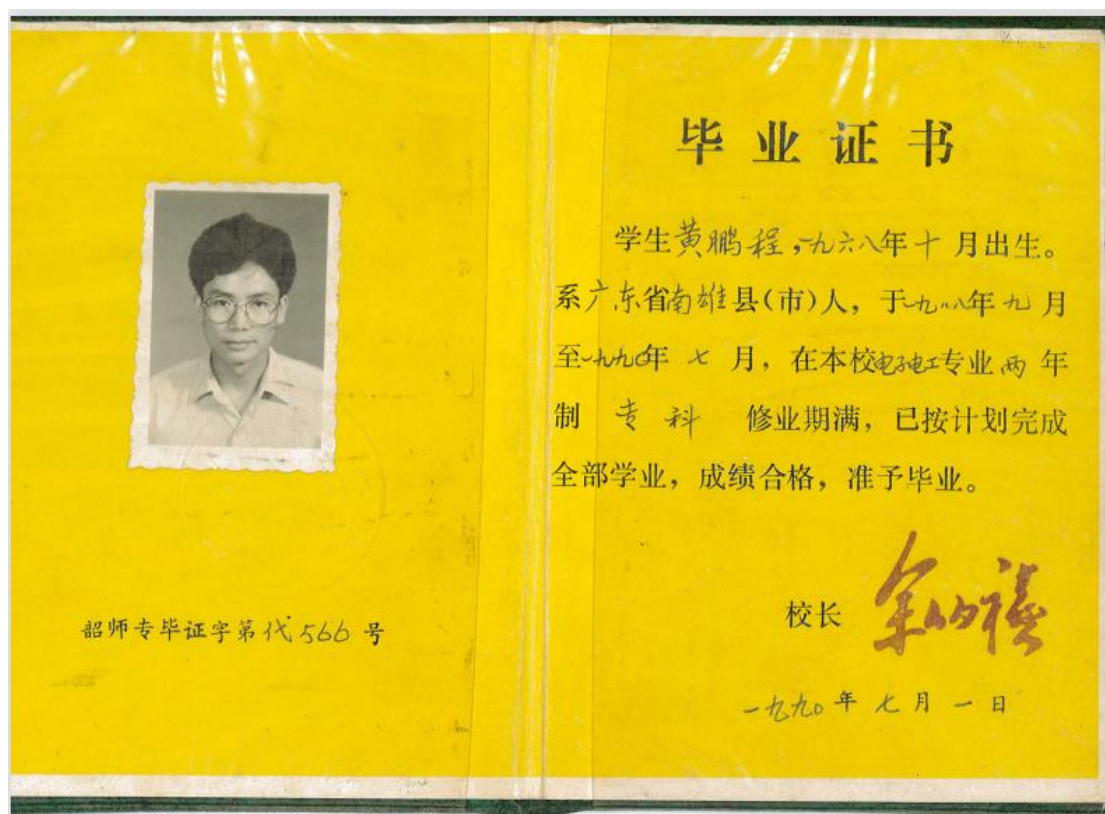 韶师专毕证字第代566号
毕业证书
学生黄鹏程,一九六八年十月出生。
系广东省南雄县(市)人,于一九八八年九月
至一九九〇年七月,在本校电子电工专业两年
制专科修业期满,已按计划完成
全部学业,成绩合格,准予毕业。
校长
一九九〇年七月一日